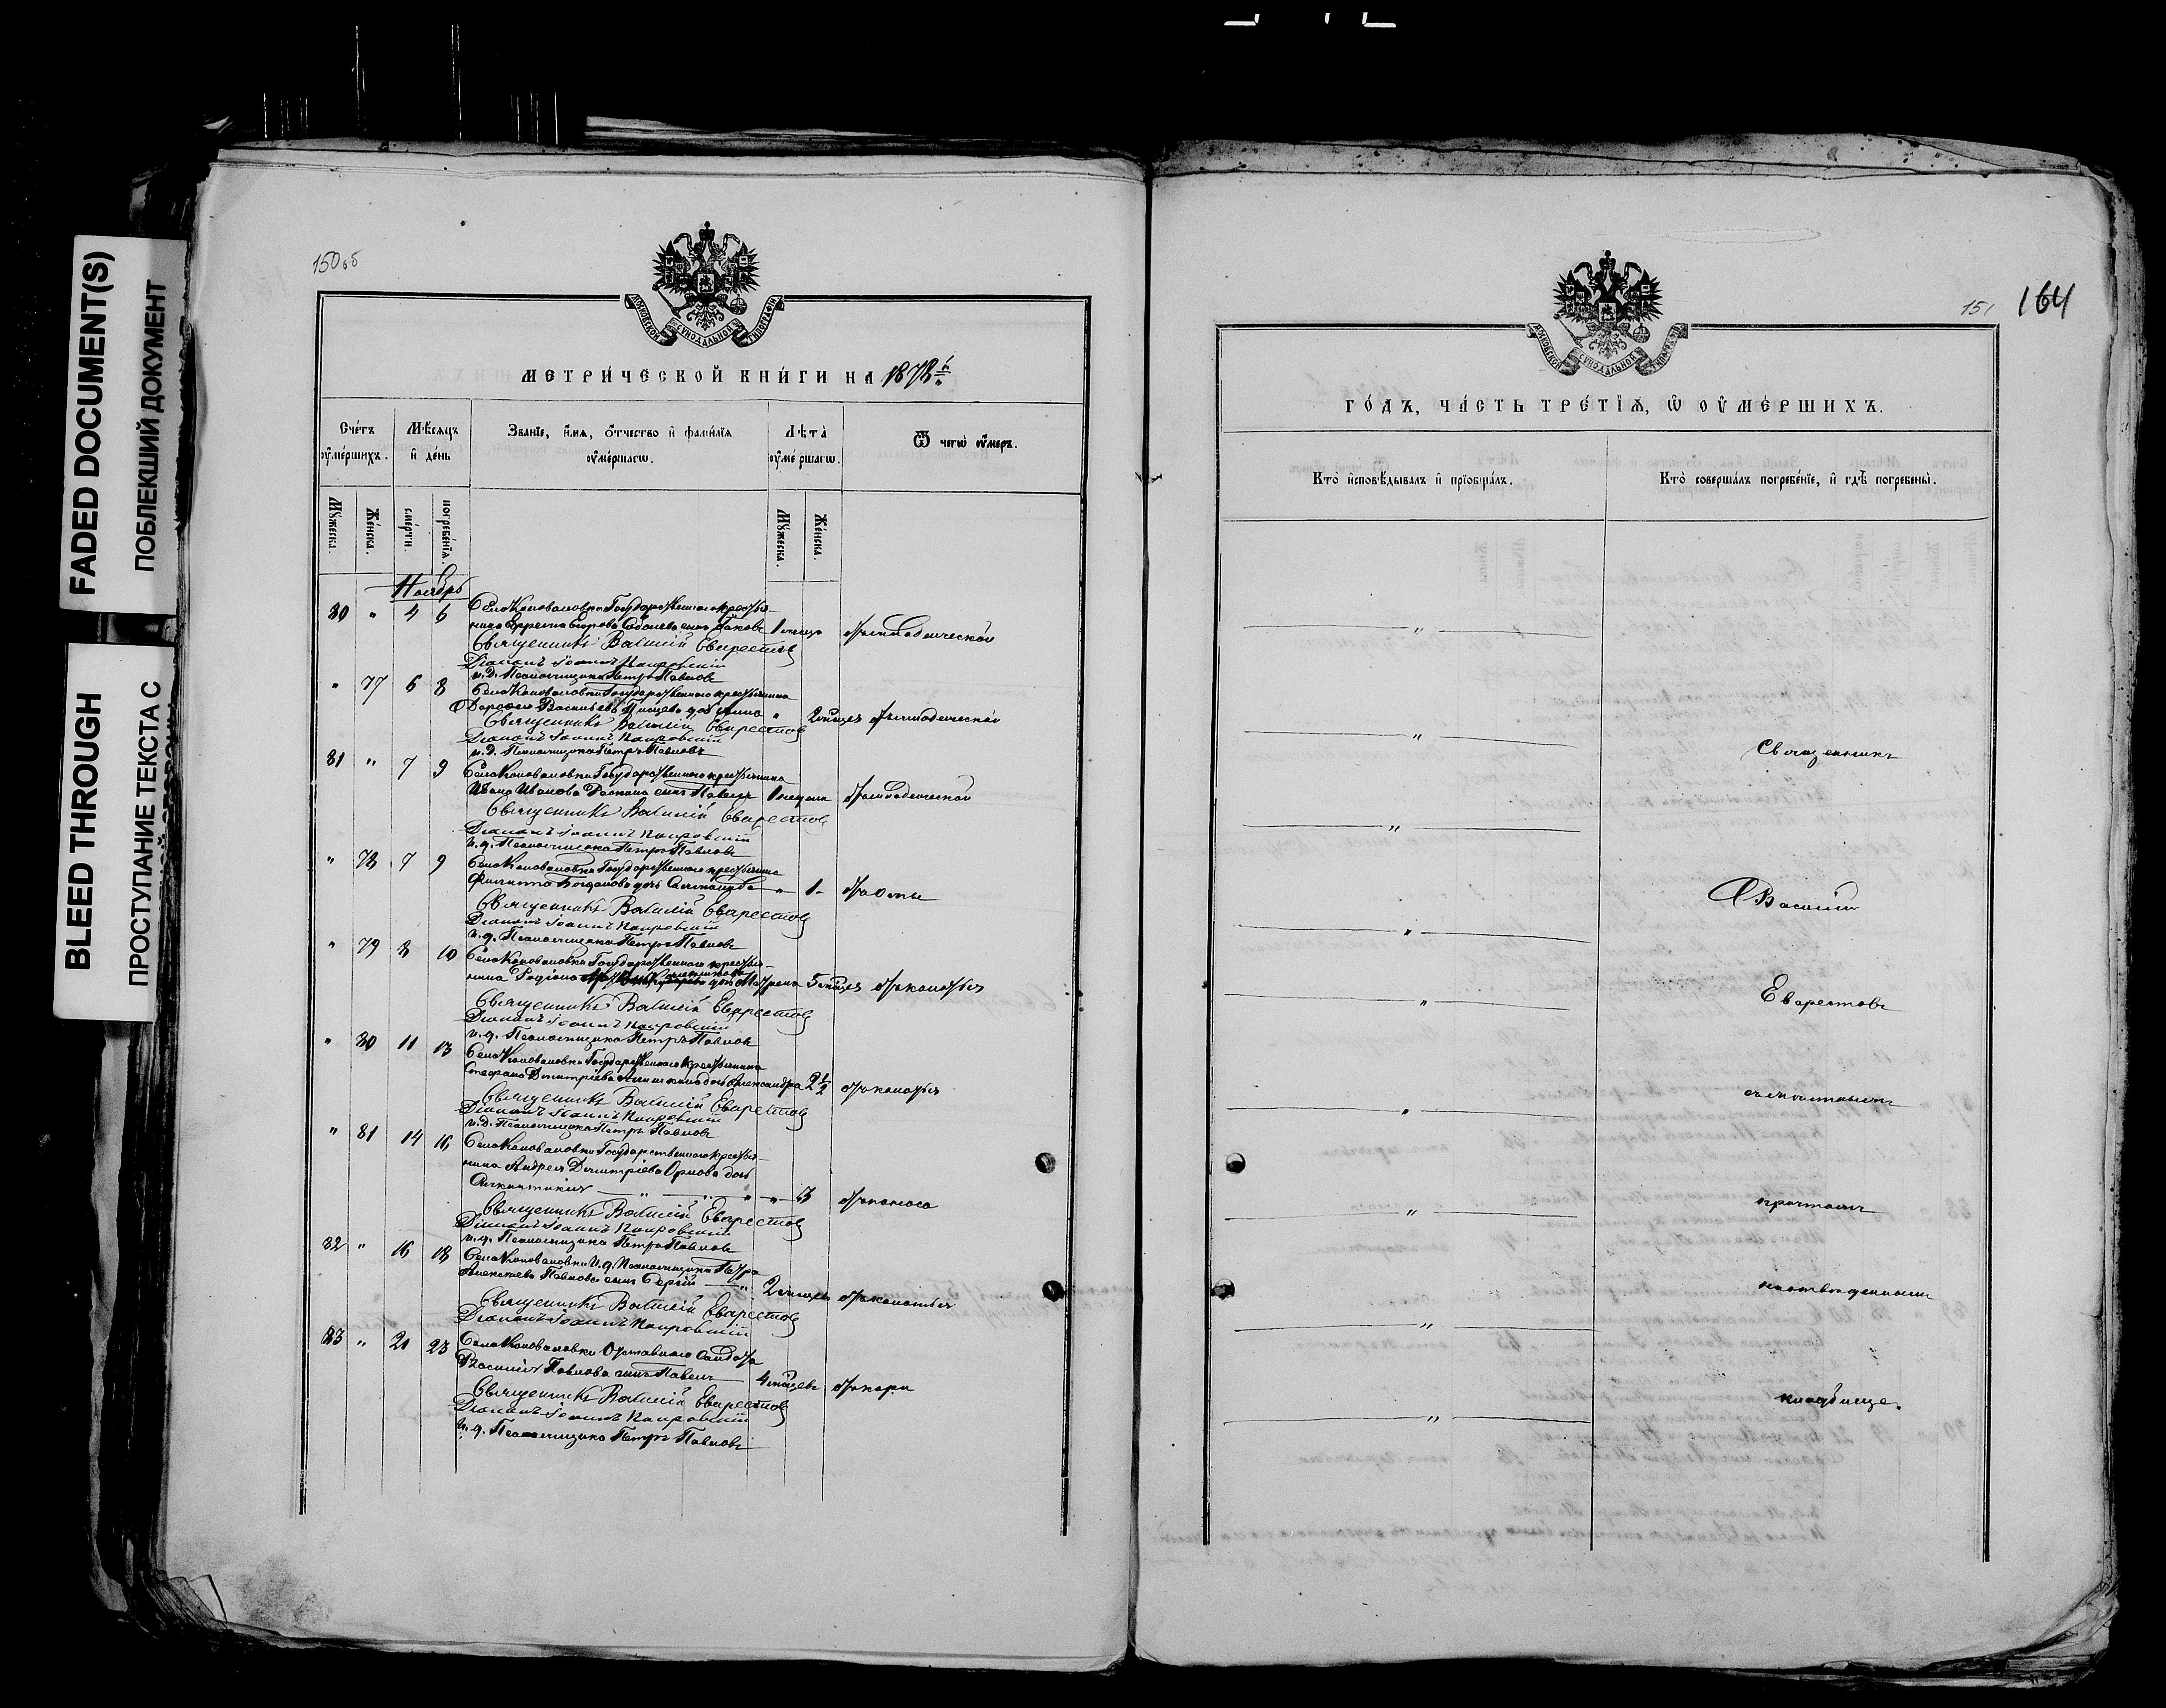 FADED DOCUMENT(S)
ПОБЛЕКШИЙ ДОКУМЕНТ
BLEED THROUGH
ПРОСТУПАНИЕ ТЕКСТА С
150об
МОСКОВСКОЙ СѴНОДАЛЬНОЙ ТИПОГРАФІИ
МЕТРИ́ЧЕСКОЙ КНИ́ГИ НА 1878й
Сче́тъ оу҆ме́ршихъ.
Мѣ́сяцъ и҆ де́нь
Зва́нїе, и҆́мя, ѻ҆́тчество и҆ фами́лїя оу҆ме́ршагѡ.
Лѣта̀ оу҆ме́ршагѡ.
Ѿ чегѡ̀ оу҆́меръ.
Мꙋ́жеска.
Же́нска.
сме́рти.
погребе́нїѧ.
Мꙋ́жеска.
Же́нска.
Ноябрь
80 " 4 6 Села Коноваловки Государственного крестья-
нина Ефрема Егорова Соболева сынъ Яковъ 1 месяца отъ младенческой
Священникъ Василій Еварестовъ
Діаконъ Іоаннъ Покровскій
и. д. Псаломщика Петръ Павловъ
" 77 6 8 Села Коноваловки Государственного крестьянина
Дорофея Васильева дочь Анна " 2 месяцев отъ младенческой
Священникъ Василій Еварестовъ
Діаконъ Іоаннъ Покровскій
и. д. Псаломщика Петръ Павловъ
81 " 7 9 Села Коноваловки Государственного крестьянина
Ивана Иванова сынъ Павелъ отъ младенческой
Священникъ Василій Еварестовъ
Діаконъ Іоаннъ Покровскій
и. д. Псаломщика Петръ Павловъ
" 78 7 9 Села Коноваловки Государственного крестьянина
Филиппа Богданова дочь " 1 - отъ оспы
Священникъ Василій Еварестовъ
Діаконъ Іоаннъ Покровскій
и. д. Псаломщика Петръ Павловъ
" 79 8 10 Села Коноваловки Государственного крестья-
нина Родіона дочь Матрена 5 месяцев отъ колотья
Священникъ Василій Еварестовъ
Діаконъ Іоаннъ Покровскій
и. д. Псаломщика Петръ Павловъ
" 80 11 13 Села Коноваловки Государственного крестьянина
Стефана Димитріева дочь Александра 2 1/2 отъ колотья
Священникъ Василій Еварестовъ
Діаконъ Іоаннъ Покровскій
и. д. Псаломщика Петръ Павловъ
" 81 14 16 Села Коноваловки Государственного крестья-
нина Андрея Димитріева Орлова дочь
" " " " 3 отъ поноса
Священникъ Василій Еварестовъ
Діаконъ Іоаннъ Покровскій
и. д. Псаломщика Петръ Павловъ
82 " 16 18 Села Коноваловки И. д. Псаломщика Петра
Алексѣева Павлова сынъ Сергій " 2 месяцев отъ колотья
Священникъ Василій Еварестовъ
Діаконъ Іоаннъ Покровскій
83 " 21 23 Села Коноваловки Отставного Солдата
Василія Павлова сынъ Павелъ 4 месяцевъ отъ кори
Священникъ Василій Еварестовъ
Діаконъ Іоаннъ Покровскій
и. д. Псаломщика Петръ Павловъ
151 164
МОСКОВСКОЙ СѴНОДАЛЬНОЙ ТИПОГРАФІИ
ГО́ДЪ, ЧА́СТЬ ТРЕ́ТЇЯ, Ѡ҆ ОУ҆МЕ́РШИХЪ.
Кто̀ и҆сповѣ́дывалъ и҆ прїѡбща́лъ.
Кто̀ соверша́лъ погребе́нїе, и҆ гдѣ̀ погребены̀.
Священникъ
Василій
Еварестовъ
съ мѣстнымъ
причтомъ
на отведенномъ
кладбище.